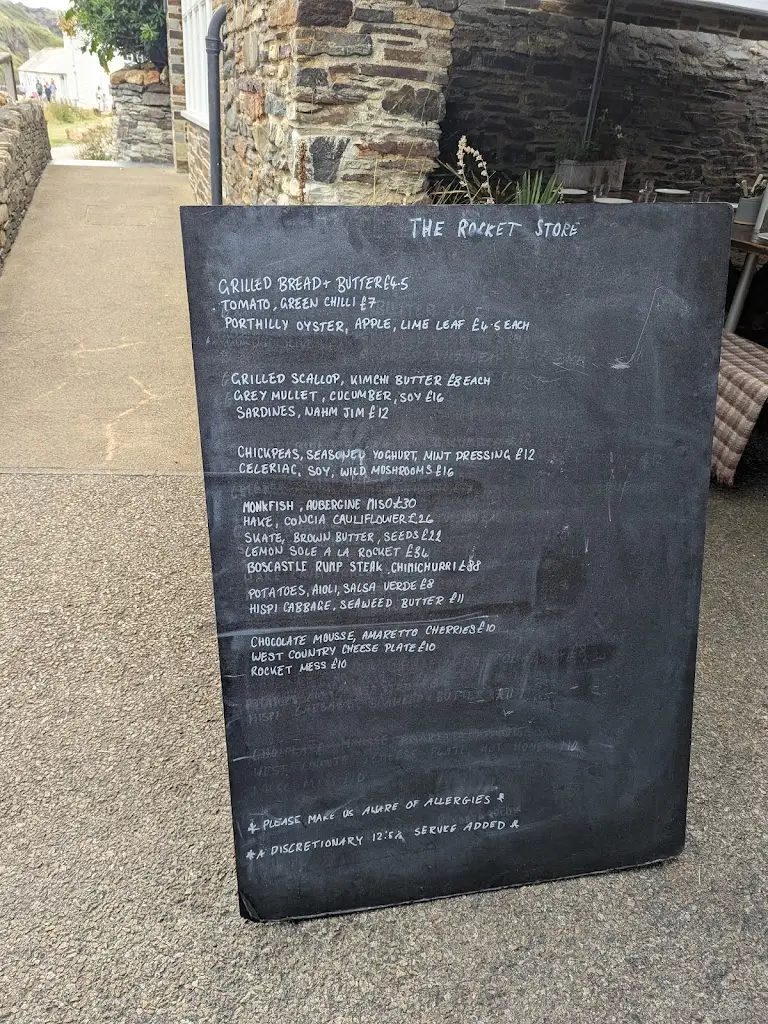 THE ROCKET STORE
GRILLED BREAD + BUTTER £4.5
TOMATO, GREEN CHILLI £7
PORTHILLY OYSTER, APPLE, LIME LEAF £4.5 EACH
GRILLED SCALLOP, KIMCHI BUTTER £8 EACH
GREY MULLET, CUCUMBER, SOY £16
SARDINES, NAHM JIM £12
CHICKPEAS, SEASONED YOGHURT, MINT DRESSING £12
CELERIAC, SOY, WILD MUSHROOMS £16
MONKFISH, AUBERGINE MISO £30
HAKE, CONCIA CAULIFLOWER £26
SKATE, BROWN BUTTER, SEEDS £22
LEMON SOLE A LA ROCKET £34
BOSCASTLE RUMP STEAK, CHIMICHURRI
POTATOES, AIOLI, SALSA VERDE £8
HISPI CABBAGE, SEAWEED BUTTER £11
CHOCOLATE MOUSSE, AMARETTO CHERRIES £10
WEST COUNTRY CHEESE PLATE £10
ROCKET MESS £10
* PLEASE MAKE US AWARE OF ALLERGIES *
* A DISCRETIONARY 12.5% SERVICE ADDED *